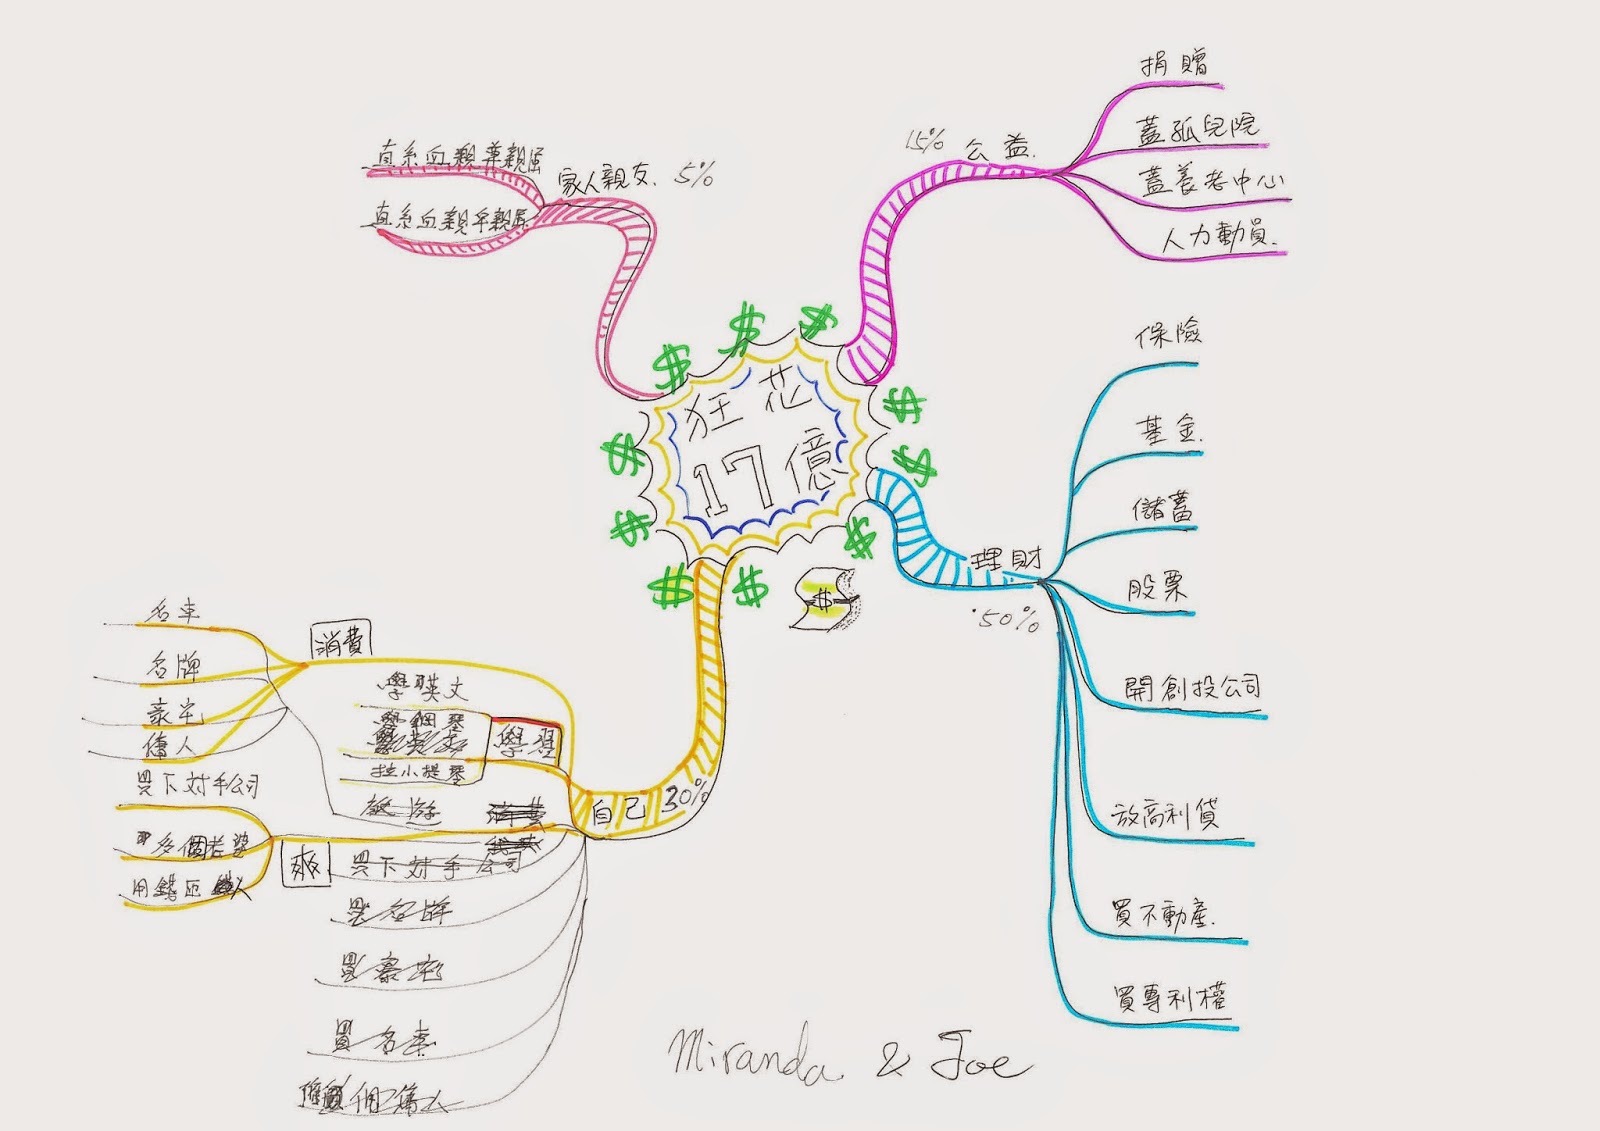 狂花
17億
15% 公益.
捐贈
蓋孤兒院
蓋養老中心
人力動員.
家人親友. 5%
理財
50%
保險
基金.
儲蓄
股票
開創投公司
放高利貸
買不動產.
買專利權
自己 30%
消費
名車
名牌
豪宅
傭人
學習
學英文
學鋼琴
拉小提琴
爽
買下対手公司
多個老婆
買下対手公司
買名牌
買豪宅
買名車
傭人
Miranda & Joe